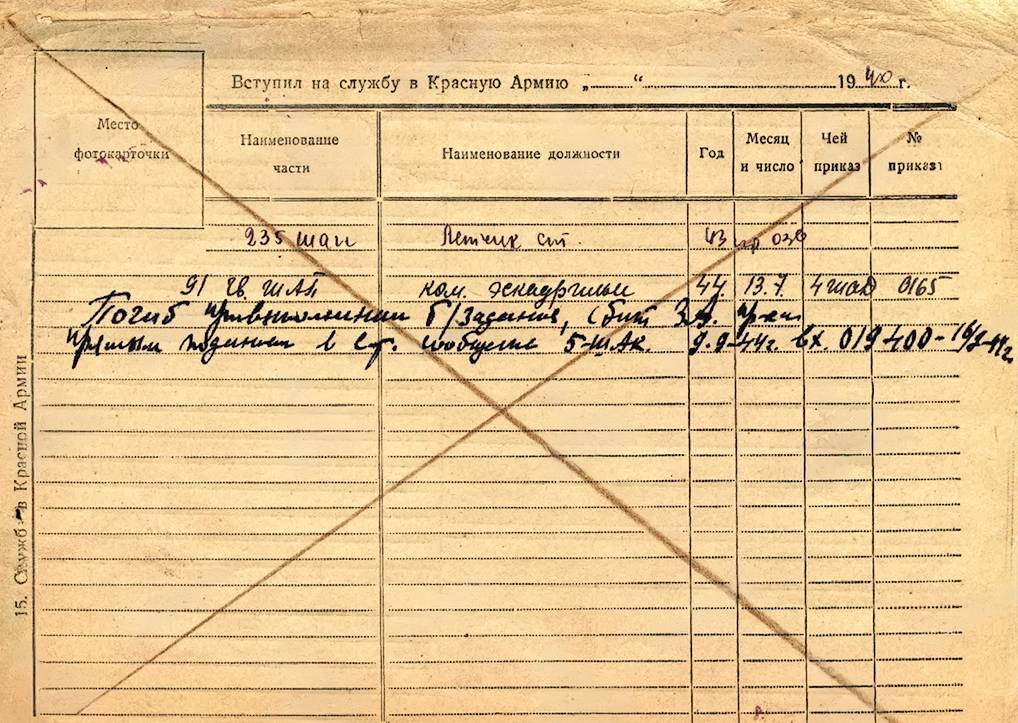 Вступил на службу в Красную Армию „ “ 1940 г.
Место фотокарточки
Наименование части
Наименование должности
Год
Месяц и число
Чей приказ
№ приказа
235 шап Летчик ст. 43 пр 030
91 гв. ШАП ком. эскадрильи 44 13.7. 4 ШАД 0165
Погиб при выполнении б/задания, сбит З.А. пр-ка
прямым попаданием в с-т. сообщение 5-ШАк. 9.9-44г. вх. 019400-
15. Служба в Красной Армии